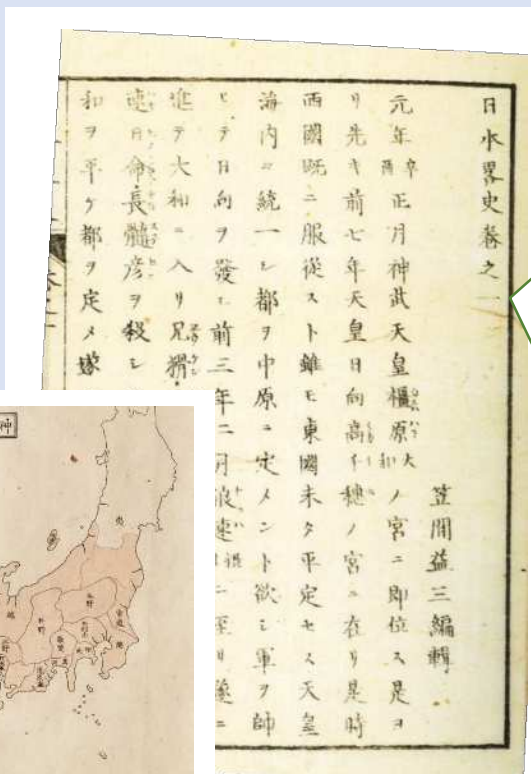 日本畧史卷之一
笠間益三編輯
元年辛酉正月神武天皇橿原大和ノ宮ニ即位ス是ヨ
リ先キ前七年天皇日向高千穗ノ宮ニ在リ是時
西國既ニ服從スト雖モ東國未タ平定セス天皇
海内ヲ統一シ都ヲ中原ニ定メント欲シ軍ヲ師
ヒテ日向ヲ發シ前三年二月浪速ニ至リ遂ニ
進テ大和ニ入リ兄猾
速日命長髄彦ヲ殺シ
和ヲ平ケ都ヲ定メ遂
神
越